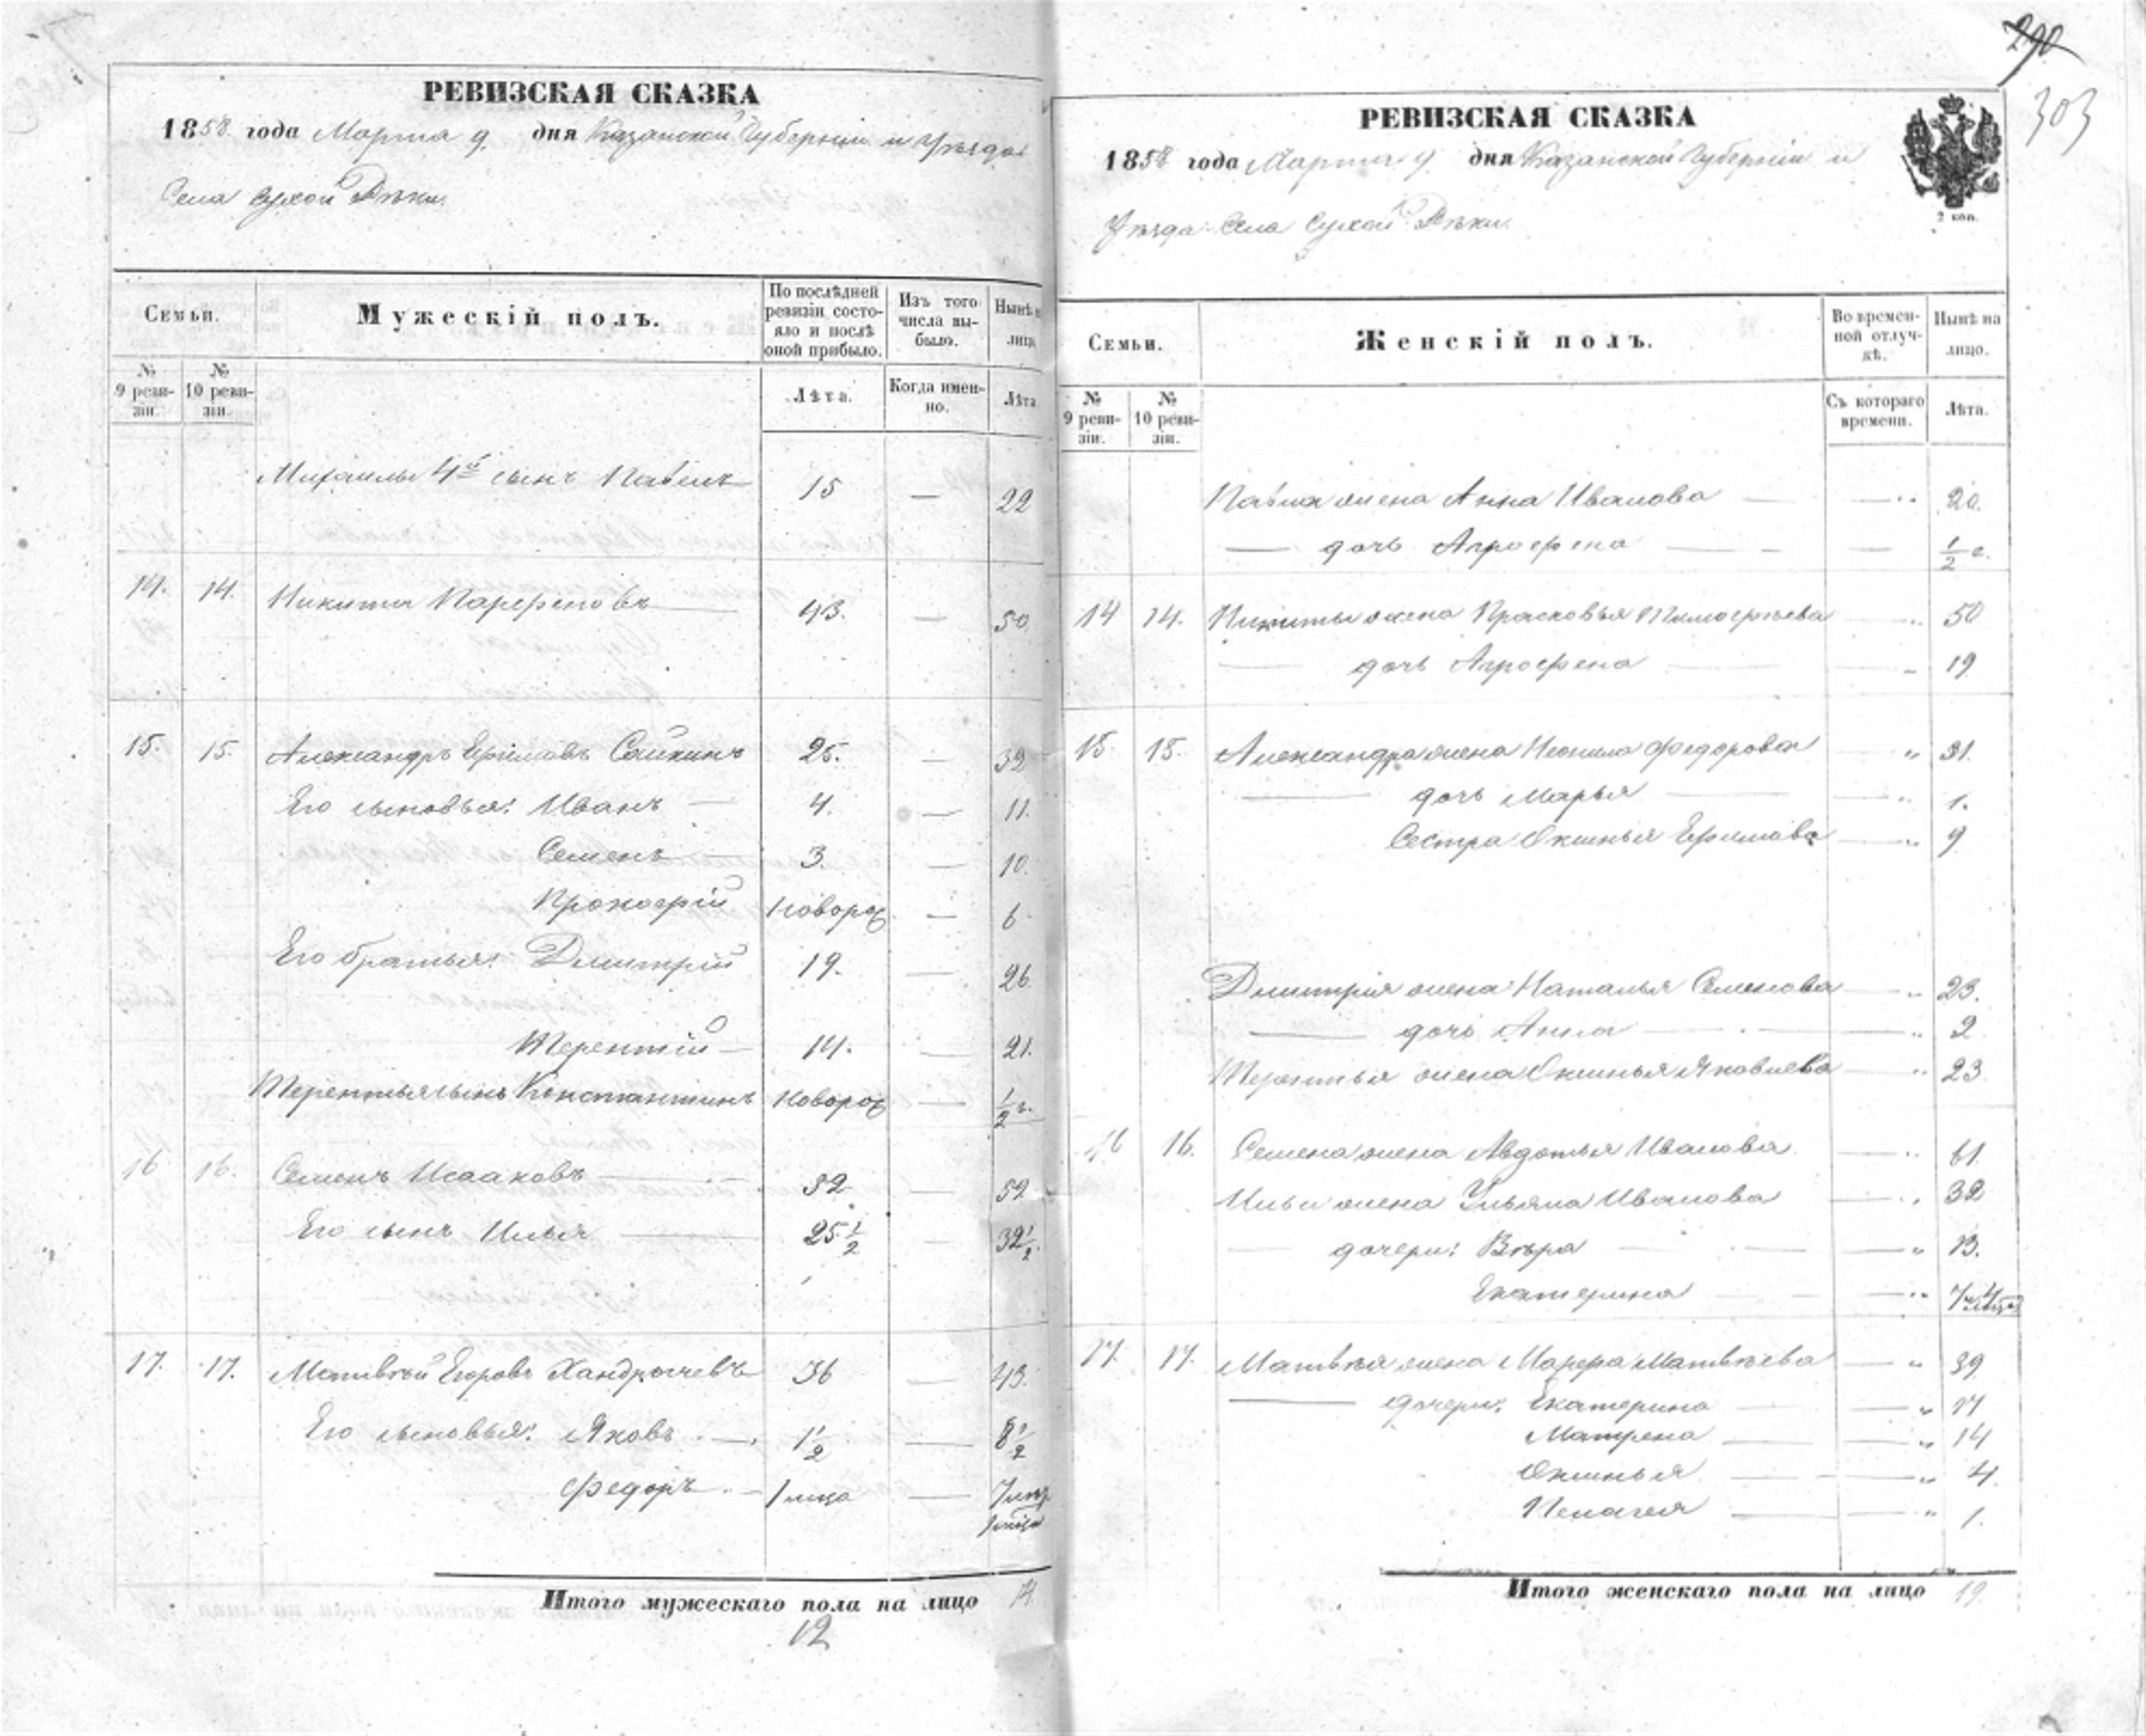 290
303
РЕВИЗСКАЯ СКАЗКА
1858 года Марта 9. дня Казанской Губерніи и Уѣзда
Села Сухой Рѣки.
Семьи.
Мужескій полъ.
По послѣдней ревизіи состояло и послѣ оной прибыло.
Изъ того числа выбыло.
Нынѣ на лицо.
№ 9 ревизіи.
№ 10 ревизіи.
Лѣта.
Когда именно.
Лѣта
Михаилы 4й сынъ Павелъ 15 — 22
14. 14. Никита Парфеновъ 43. — 50.
15. 15. Александръ Ефимовъ Сайкинъ 25. — 32
Его сыновья: Иванъ — 4. — 11.
Семенъ — 3. — 10.
Прокофій Новорож — 6
Его братья: Дмитрій 19. — 26
Терентій — 14. — 21.
Терентья сынъ Константинъ Новорож — 1/2 г.
16 16. Семенъ Исааковъ 52 — 59
Его сынъ Илья 25 1/2 — 32 1/2
17. 17. Матвѣй Егоровъ Хандрычевъ 36 — 43.
Его сыновья: Яковъ 1 1/2 — 8 1/2
Федоръ 1 мѣца — 7 лѣт 1 мѣца
Итого мужескаго пола на лицо 14.
12
РЕВИЗСКАЯ СКАЗКА
1858 года Марта 9 дня Казанской Губерніи и
Уѣзда Села Сухой Рѣки.
2 коп.
Семьи.
Женскій полъ.
Во временной отлучкѣ.
Нынѣ на лицо.
№ 9 ревизіи.
№ 10 ревизіи.
Съ котораго времени.
Лѣта.
Павла жена Анна Иванова — 20.
— дочь Агрофена — 1/2 г.
14 14. Никиты жена Прасковья Тимофѣева — 50
— дочь Агрофена — 19
15. 15. Александра жена Неонила Федорова — 31.
— дочь Марья — 1.
Сестра Оксинья Ефимова — 9
Дмитрія жена Наталья Семенова — 23.
— дочь Анна — 2
Терентья жена Оксинья Яковлева — 23
16 16. Семена жена Авдотья Иванова — 61
Ильи жена Ульяна Иванова — 32
— дочери: Вѣра — 13.
Екатерина — 7 и 4 мѣца
17. 17. Матвѣя жена Марфа Матвѣева — 39
— дочери: Екатерина — 17
Матрена — 14
Оксинья — 4.
Пелагея — 1.
Итого женскаго пола на лицо 19.